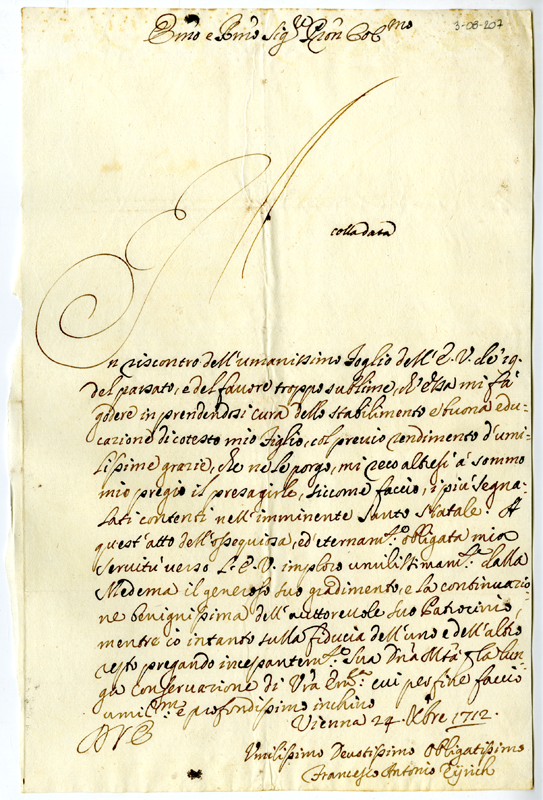 3-08-207
Emo e Rmo Sigr Pron Colmo
colla data
In riscontro dell'umanissimo foglio dell'E. V. de' 19.
del passato, e del favore troppo sublime, ch'Essa mi fà
godere in prendendosi cura dello stabilimento e buona edu-
cazione di cotesto mio figlio, col previo rendimento d'umi-
lissime grazie, che ne le porgo, mi reco altresi à sommo
mio pregio il presagirle, siccome faccio, i più segna-
lati contenti nell'imminente Santo Natale. A
quest'atto dell'ossequiosa, ed eternamte obligata mia
servitù verso L'E. V. imploro umilissimamte dalla
Medema il generoso suo gradimento, e la continuazio-
ne benignissima dell'auttorevole suo Patrocinio,
mentre io intanto sulla fiducia dell'uno e dell'altro
resto pregando incessantemte Sua Dna Mtà p la lun-
ga conservazione di Vra Emza cui per fine faccio
umilmo e profondissimo inchino
Vienna 24. Xbre 1712.
DVE
Umilissimo Devotissimo Obligatissimo
Francesco Antonio